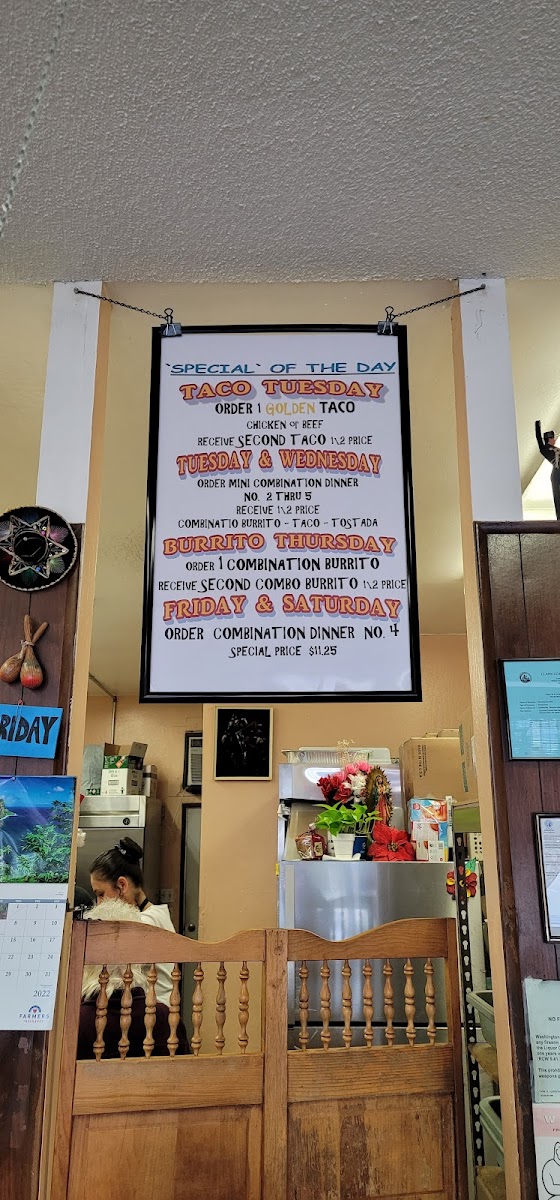 `SPECIAL` OF THE DAY
TACO TUESDAY
ORDER 1 GOLDEN TACO
CHICKEN or BEEF
RECEIVE SECOND TACO 1\2 PRICE
TUESDAY & WEDNESDAY
ORDER MINI COMBINATION DINNER
NO. 2 THRU 5
RECEIVE 1\2 PRICE
COMBINATIO BURRITO - TACO - TOSTADA
BURRITO THURSDAY
ORDER 1 COMBINATION BURRITO
RECEIVE SECOND COMBO BURRITO 1\2 PRICE
FRIDAY & SATURDAY
ORDER COMBINATION DINNER NO. 4
SPECIAL PRICE $11.25
RIDAY
2022
FARMERS